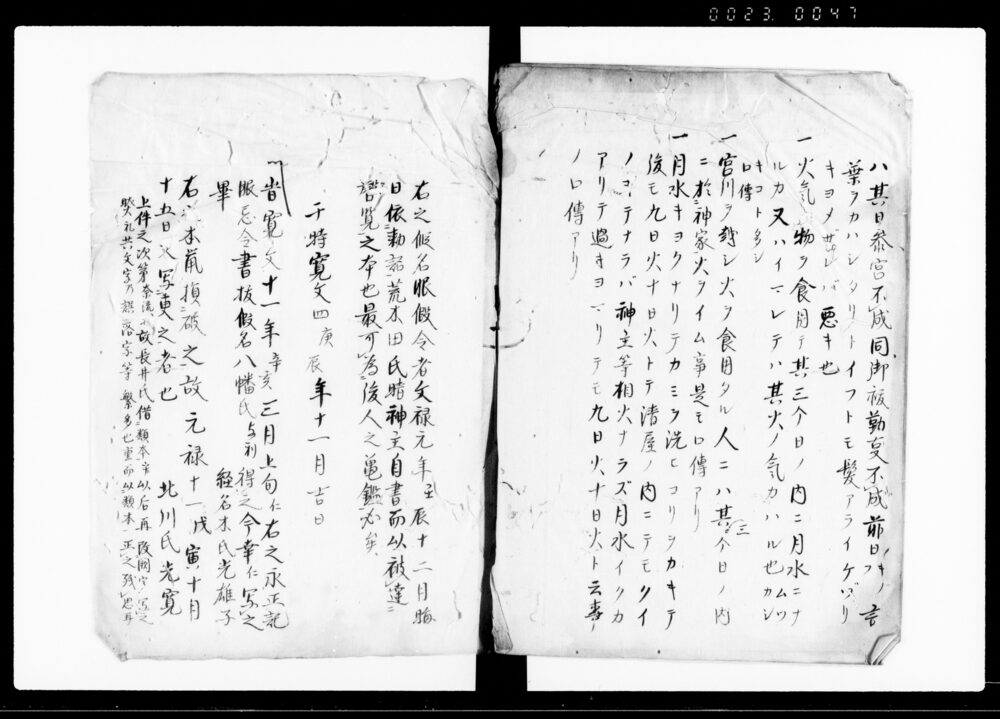 0023.0047
ハ其日参宮不成同御祓勤変不成前日ノ言
葉ヲカハシタリトイフトモ髪アライケヅリ
キヨメザレバ悪キ也
一火気ノ物ヲ食用テ其三个日ノ内ニ月水ニナ
ルカ又ハイマレテハ其火ノ気カハル也カシ
キコト多シ
口傳
一宮川ヲ越シ火ヲ食用タル人ニハ其三个日ノ内
ニ於神家火ライム事是モ口傳アリ
一月水キヨクナリテカミヲ洗ヒコリヲカキテ
後モ九日火十日火トテ清屋ノ内ニテモクイ
ノヨテナラバ神主等相火ナラズ月水イクカ
アリテ過キヨマリテモ九日火十日火ト云事
ノ口傳アリ
右之假名服假令者文禄元年壬辰十二月晦
日依勅詔荒木田氏晴神主自書而以被達
誥覧之本也最可為後人之亀鑑必矣
于時寛文四庚辰年十一月吉日
旹寛文十一年辛亥三月上旬仁右之永正記
服忌令書抜假名八幡氏与利得之今幸仁写之
畢 経名木氏光雄子
右之本鼠損破之故元禄十一戊寅十月
十五日又写更之者也 北川氏光寛
上件之次第奈流故長井氏借類本以后再改閲写之
然礼共文字乃誤落字等繁多也重而以類本正之残思耳